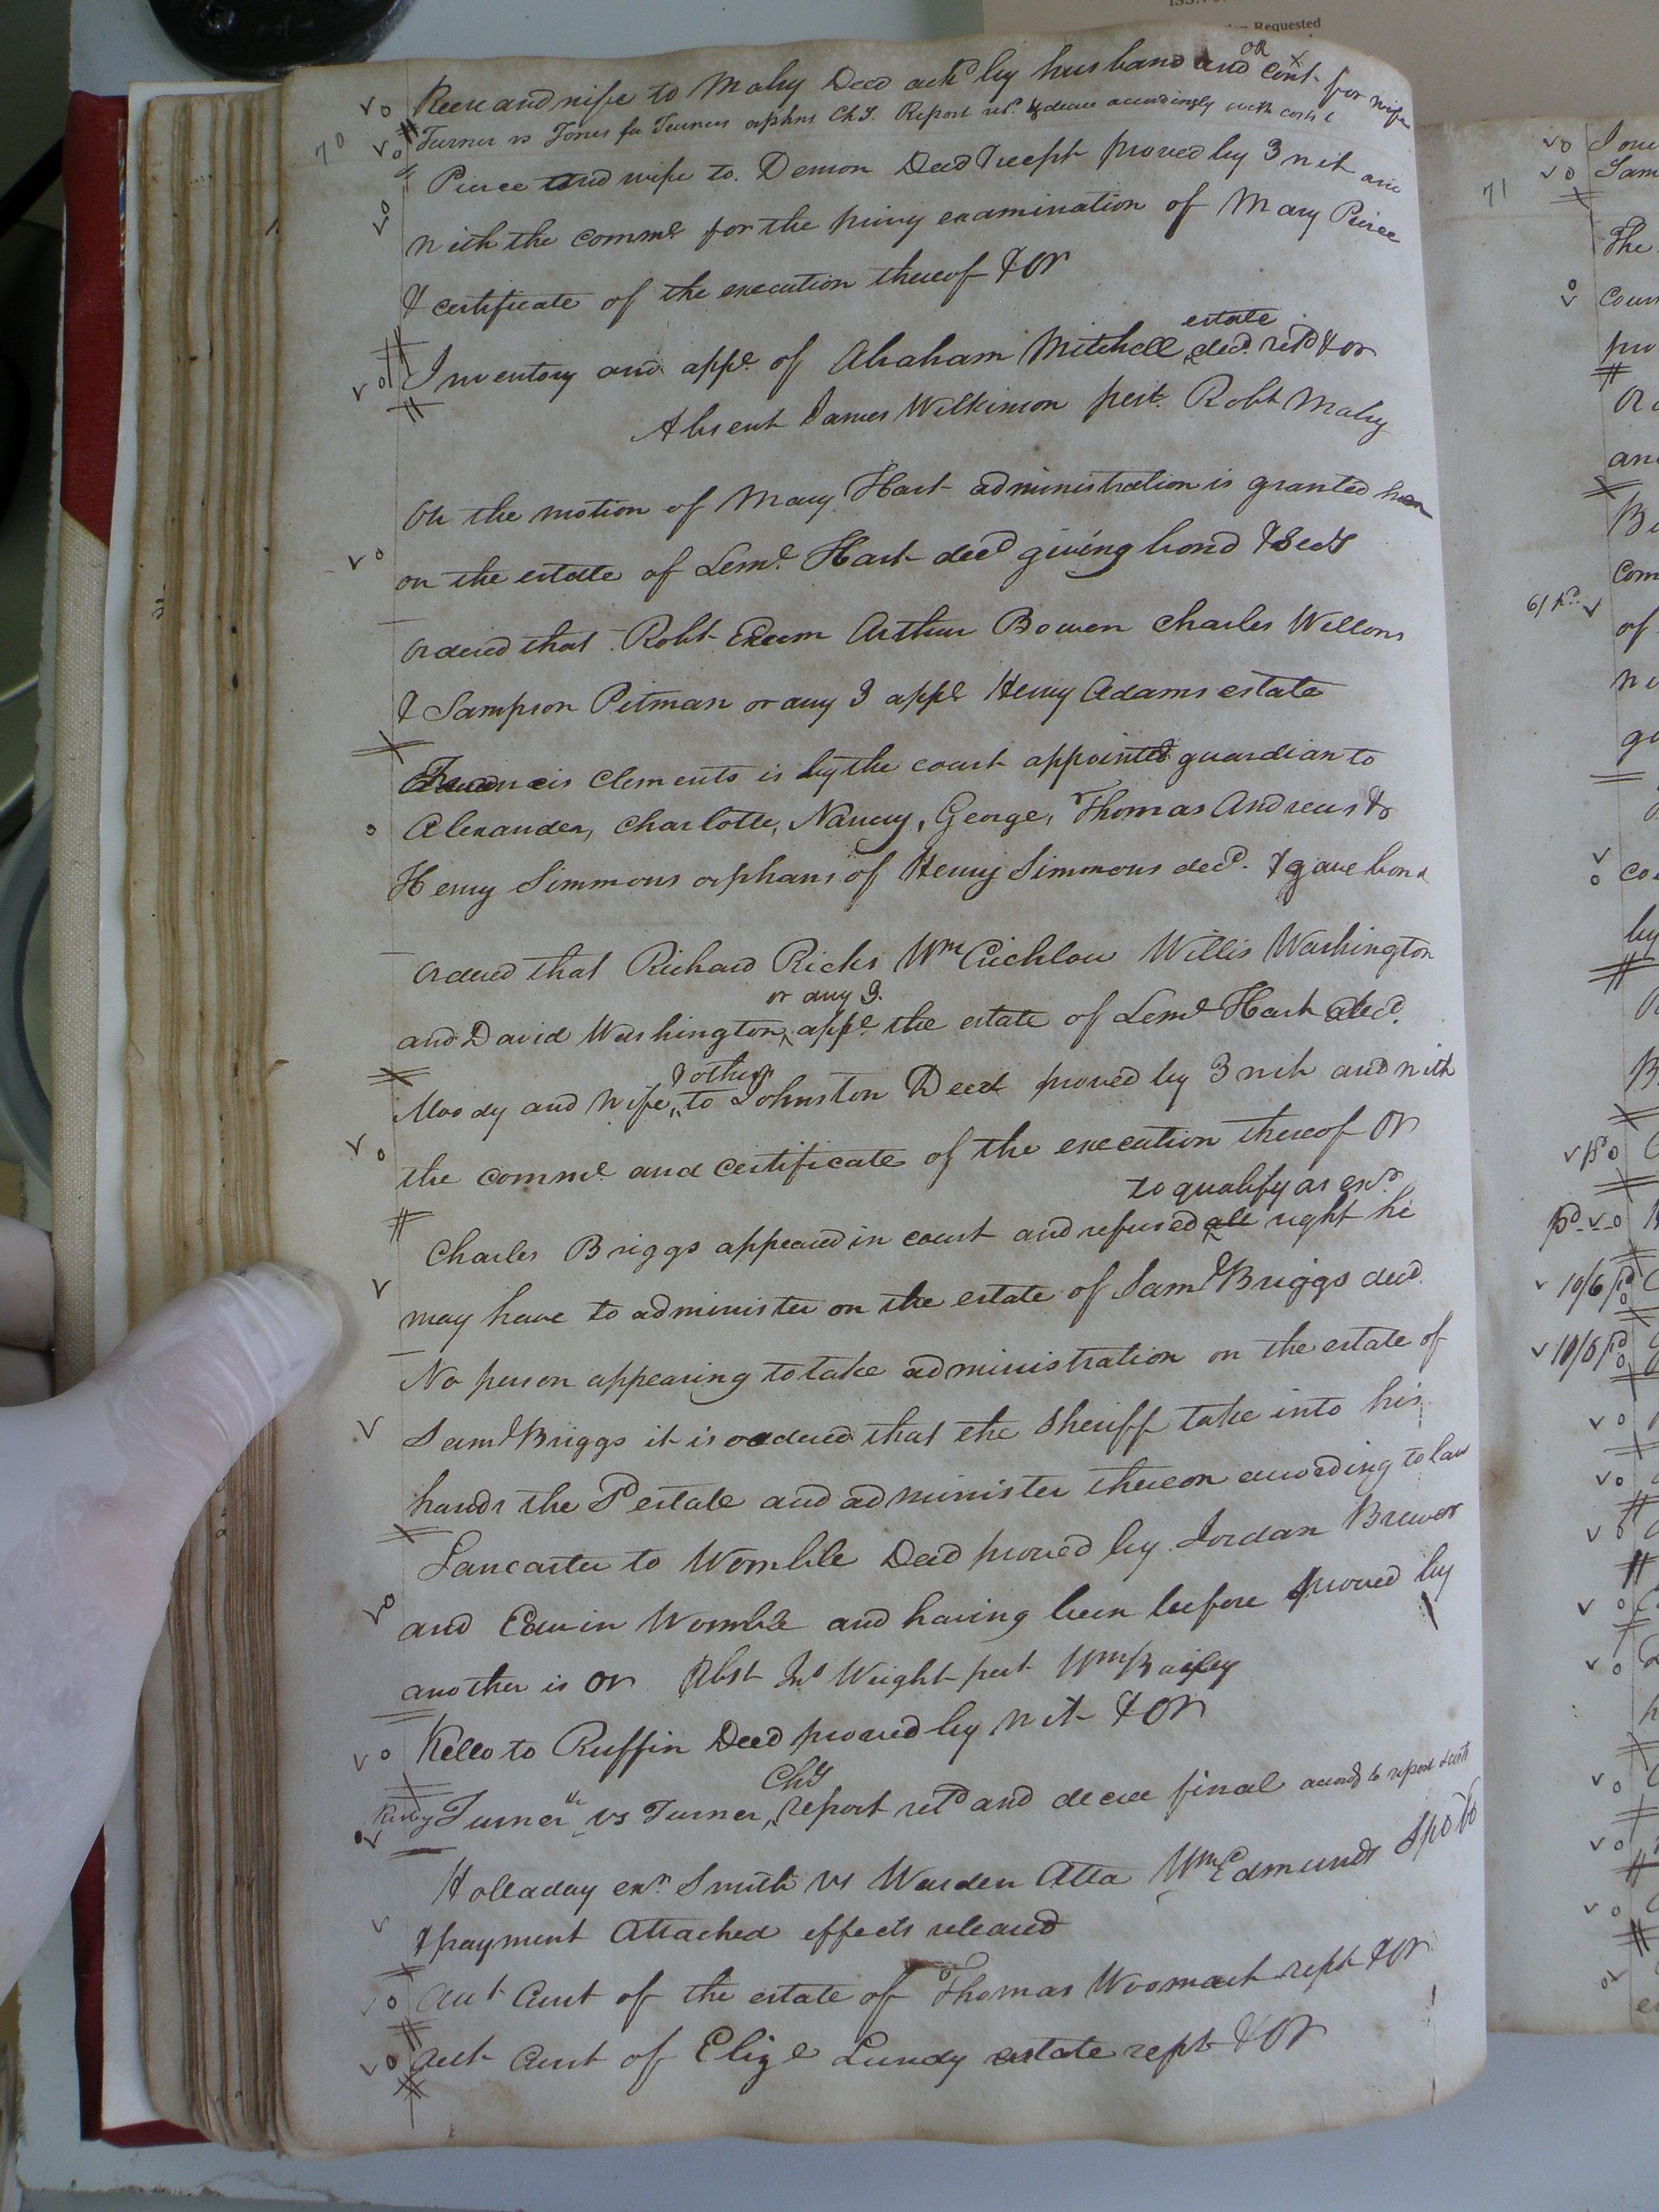 Requested
70
Reese and wife to Maby Deed ackd by husband and OR Cont for wife
Turner vs Jones for Turners orphns Chy. Report retd & decree accordingly with costs
Peirce and wife to Denson Deed & recpt proved by 3 wit and
with the commn for the privy examination of Mary Peirce
& certificate of the execution thereof & OR
Inventory and appt of Abraham Mitchell decd. estate retd & or
Absent James Wilkinson pest. Robt Maby
On the motion of Mary Hart administration is granted her
on the estate of Leml Hart decd giving bond & Secy
Ordered that Robt Arthur Bowen Charles Wellons
& Sampson Pitman or any 3 appe Henry Adams estate
Francis Clements is by the court appointed guardian to
Alexander, Charlotte, Nancy, George, Thomas Andrews &
Henry Simmons orphans of Henry Simmons decd. & gave bond
Ordered that Richard Ricks Wm Crichlow Willis Washington
or any 3.
and David Washington appe the estate of Leml Hart decd.
& others
Moody and wife to Johnston Deed proved by 3 wit and with
the commn and certificate of the execution thereof OR
to qualify as exr
Charles Briggs appeared in court and refused all right he
may have to administer on the estate of Saml Briggs decd.
No person appearing to take administration on the estate of
Saml Briggs it is ordered that the Sheriff take into his
hands the sd estate and administer thereon according to law
Lancaster to Womble Deed proved by Jordan Brewer
and Edwin Womble and having been before proved by
another is OR Abst Jno Wright pest Wm Bailey
Kello to Ruffin Deed proved by wit & OR
Chy
Turner vs Turner, report retd and decree final accordg to report & costs
Holladay exr. Smith vs Warden Atta Wm Edmunds
& payment Attached effects released
Aut Acnt of the estate of Thomas Woomack rept & OR
Aut Acnt of Eliz Lundy estate rept & OR
71
6/ pd
10/6 pd
10/6 pd